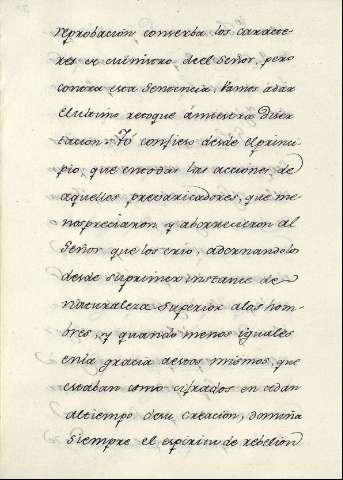 reprobacion conserba los caracte-
res de enimistro deel Señor, pero
conoto esta Sentencia, Vamos a dar
el ultimo retoque á nuestra Diser
tacion. Yó confieso desde el princi-
pio, que en todas las acciones de
aquellos prevaricadores, que me
nospreciaron, y aborrecieron al
Señor que los crio, adornandolos
desde su primer instante de
Naturaleza Superior alos hom-
bres, y quando menos iguales
enla gracia aestos mismos, que
estaban como cifrados en Adan
altiempo desu creacion, domina
siempre el espiritu de rebelion